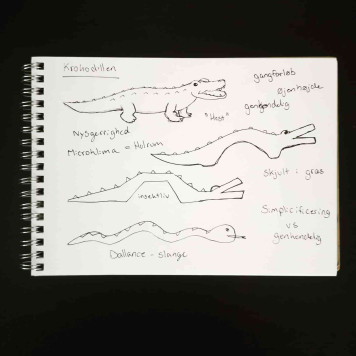 Krokodillen
gangforløb
Øjenhøjde
genkendelig
"Hest"
Nysgerrighed
Microklima = Hulrum
Skjult i græs
Insektliv
Simplificering
vs
genkendelig
Dallance - slange